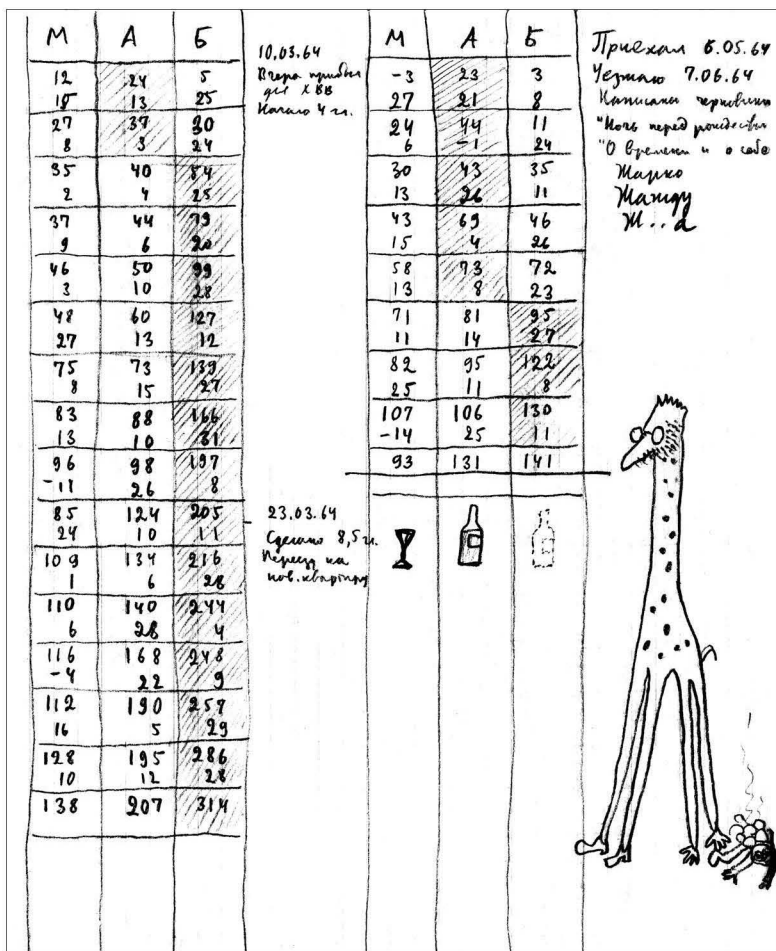 М А Б
12 24 5
15 13 25
27 37 30
8 3 24
35 40 54
2 4 25
37 44 79
9 6 20
46 50 99
3 10 28
48 60 127
27 13 12
75 73 139
8 15 27
83 88 166
13 10 31
96 98 197
-11 26 8
85 124 205
24 10 11
109 134 216
1 6 28
110 140 244
6 28 4
116 168 248
-4 22 9
112 190 257
16 5 29
128 195 286
10 12 28
138 207 314
10.03.64
Вчера прибыл
для ХВВ
Начало 4 гл.
23.03.64
Сделано 8,5 гл.
Переезд на
нов. квартиру
М А Б
-3 23 3
27 21 8
24 44 11
6 -1 24
30 43 35
13 26 11
43 69 46
15 4 26
58 73 72
13 8 23
71 81 95
11 14 27
82 95 122
25 11 8
107 106 130
-14 25 11
93 131 141
Приехал 6.05.64
Уезжаю 7.06.64
Написаны черновики
"Ночь перед рождеством
"О времени и о себе
Жарко
Жажду
Ж..а